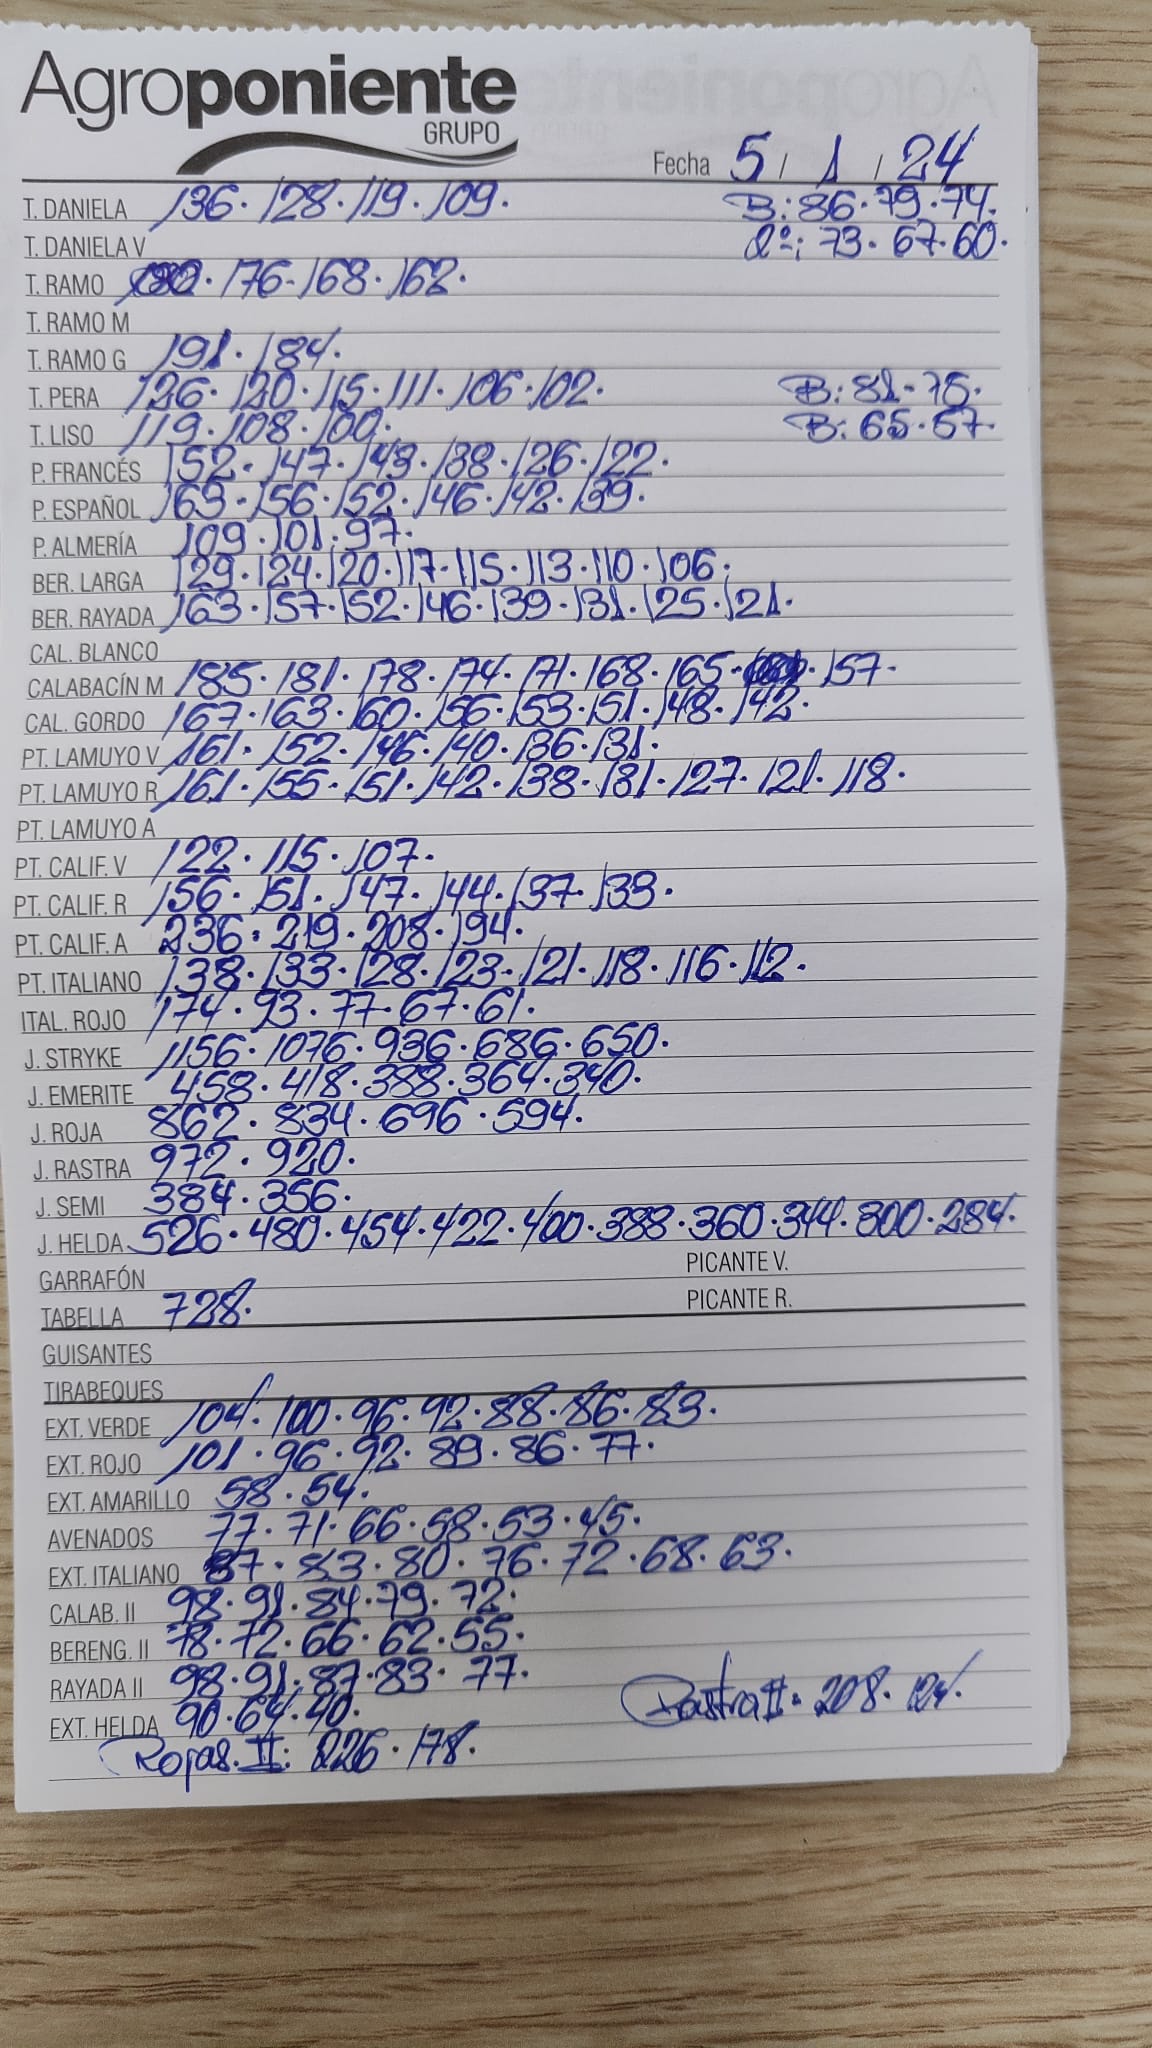 Agroponiente
GRUPO
Fecha 5 / 1 / 24
T. DANIELA 136. 128. 119. 109. B: 86. 79. 74.
T. DANIELA V 2ª: 73. 67. 60.
T. RAMO 176. 168. 162.
T. RAMO M
T. RAMO G 191. 184.
T. PERA 126. 120. 115. 111. 106. 102. B: 81. 75.
T. LISO 119. 108. 100. B: 65. 57.
P. FRANCÉS 152. 147. 143. 138. 126. 122.
P. ESPAÑOL 163. 156. 152. 146. 142. 139.
P. ALMERÍA 109. 101. 97.
BER. LARGA 129. 124. 120. 117. 115. 113. 110. 106.
BER. RAYADA 163. 157. 152. 146. 139. 131. 125. 121.
CAL. BLANCO
CALABACÍN M 185. 181. 178. 174. 171. 168. 165. 157.
CAL. GORDO 167. 163. 160. 156. 153. 151. 148. 142.
PT. LAMUYO V 161. 152. 146. 140. 136. 131.
PT. LAMUYO R 161. 155. 151. 142. 138. 131. 127. 121. 118.
PT. LAMUYO A
PT. CALIF. V 122. 115. 107.
PT. CALIF. R 156. 151. 147. 144. 137. 133.
PT. CALIF. A 236. 219. 208. 194.
PT. ITALIANO 138. 133. 128. 123. 121. 118. 116. 112.
ITAL. ROJO 174. 93. 77. 67. 61.
J. STRYKE 1156. 1076. 936. 686. 650.
J. EMERITE 458. 418. 388. 364. 340.
J. ROJA 862. 834. 696. 594.
J. RASTRA 972. 920.
J. SEMI 384. 356.
J. HELDA 526. 480. 454. 422. 400. 388. 360. 344. 300. 284.
GARRAFÓN PICANTE V.
TABELLA 728. PICANTE R.
GUISANTES
TIRABEQUES
EXT. VERDE 104. 100. 96. 92. 88. 86. 83.
EXT. ROJO 101. 96. 92. 89. 86. 77.
EXT. AMARILLO 58. 54.
AVENADOS 77. 71. 66. 58. 53. 45.
EXT. ITALIANO 87. 83. 80. 76. 72. 68. 63.
CALAB. II 98. 91. 84. 79. 72.
BERENG. II 78. 72. 66. 62. 55.
RAYADA II 98. 91. 87. 83. 77.
EXT. HELDA 90. 64. 40. Rastra II. 208. 124.
Rojas. II: 226. 178.